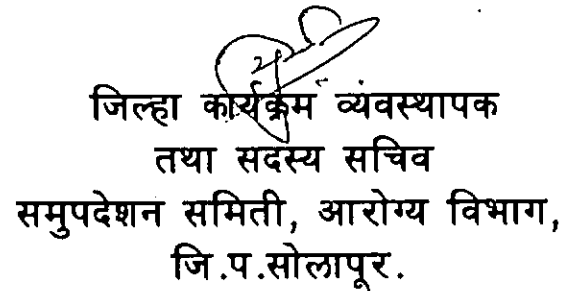 जिल्हा कार्यक्रम व्यवस्थापक
तथा सदस्य सचिव
समुपदेशन समिती, आरोग्य विभाग,
जि.प.सोलापूर.